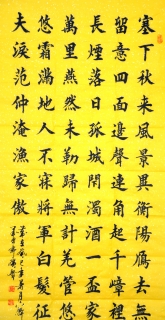 塞下秋来風景異衡陽雁去無
留意四面邊聲連角起千嶂裏
長煙落日孤城閉濁酒一盃家
萬里燕然未勒歸無計羌管悠
悠霜滿地人不寐將軍白髮征
夫淚范仲淹漁家傲